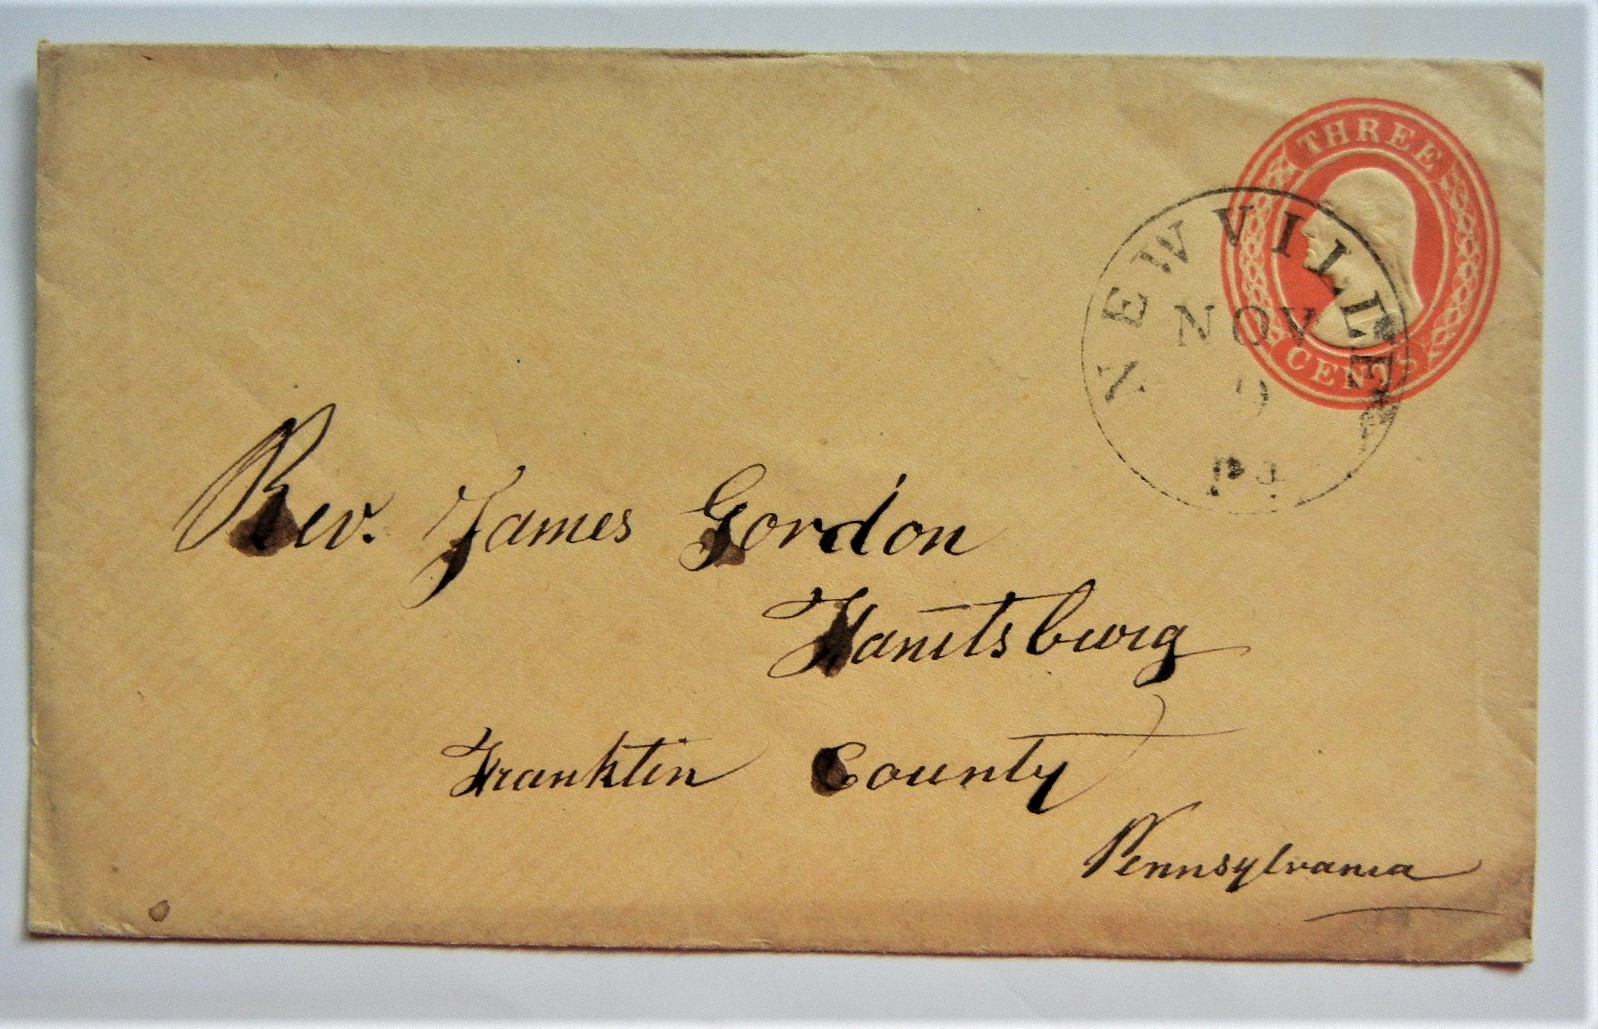 THREE
CENTS
NEWVILLE
NOV
9
Pa
Rev. James Gordon
Fanitsburg
Franklin County
Pennsylvania